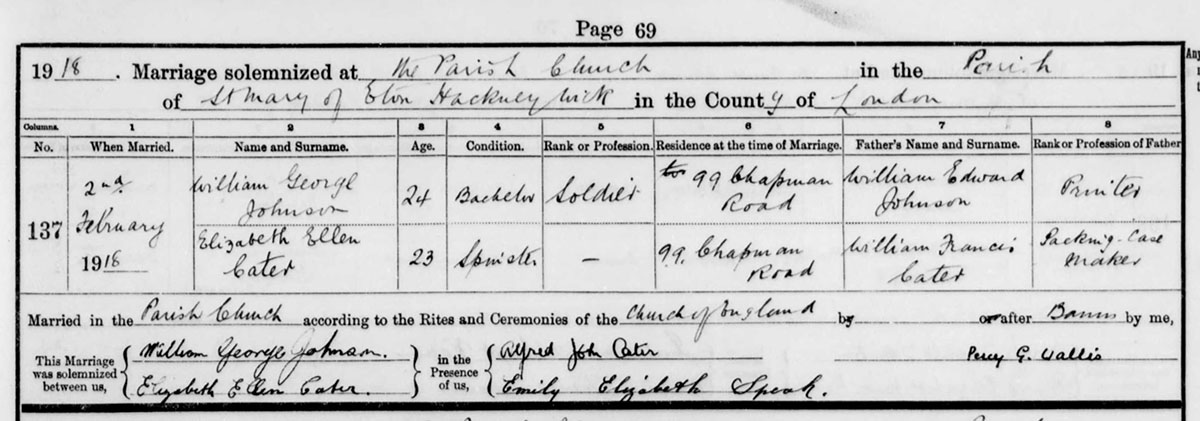 Page 69
1918. Marriage solemnized at the Parish Church in the Parish
of St Mary of Eton Hackney Wick in the County of London
Columns. 1 2 3 4 5 6 7 8
No. When Married. Name and Surname. Age. Condition. Rank or Profession. Residence at the time of Marriage. Father's Name and Surname. Rank or Profession of Father
137 2nd February 1918 William George Johnson 24 Bachelor Soldier 99 Chapman Road William Edward Johnson Printer
Elizabeth Ellen Cater 23 Spinster — 99 Chapman Road William Francis Cater Packing-Case Maker
Married in the Parish Church according to the Rites and Ceremonies of the Church of England by or after Banns by me,
This Marriage was solemnized between us, William George Johnson. in the Presence of us, Alfred John Cater Percy G. Wallis
Elizabeth Ellen Cater. Emily Elizabeth Speak.